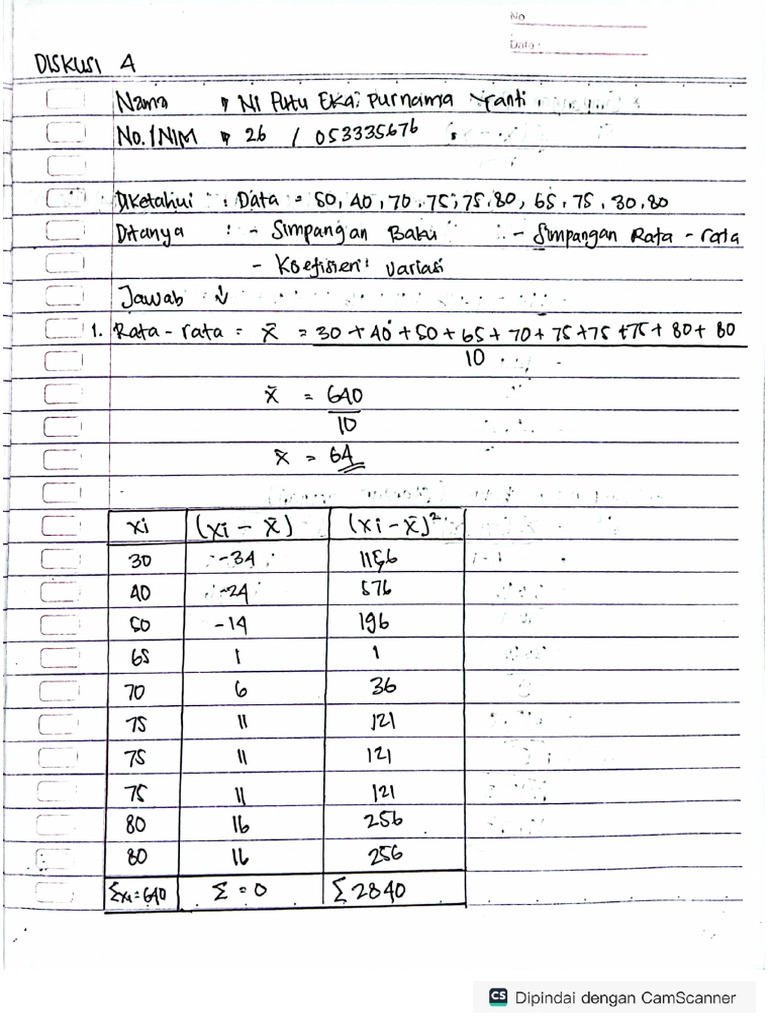 No
Date :
DISKUSI 4
Nama : Ni Putu Eka Purnama Yanti
No./NIM : 26 / 053335676
Diketahui : Data = 50, 40, 70, 75, 75, 80, 65, 75, 30, 80
Ditanya : - Simpangan Baku - Simpangan Rata-rata
- Koefisien Variasi
Jawab : ↓
1. Rata-rata = x̄ = 30 + 40 + 50 + 65 + 70 + 75 + 75 + 75 + 80 + 80
10
x̄ = 640
10
x̄ = 64
xi (xi - x̄) (xi - x̄)²
30 -34 1156
40 -24 576
50 -14 196
65 1 1
70 6 36
75 11 121
75 11 121
75 11 121
80 16 256
80 16 256
Σxi = 640 Σ = 0 Σ 2840
CS Dipindai dengan CamScanner